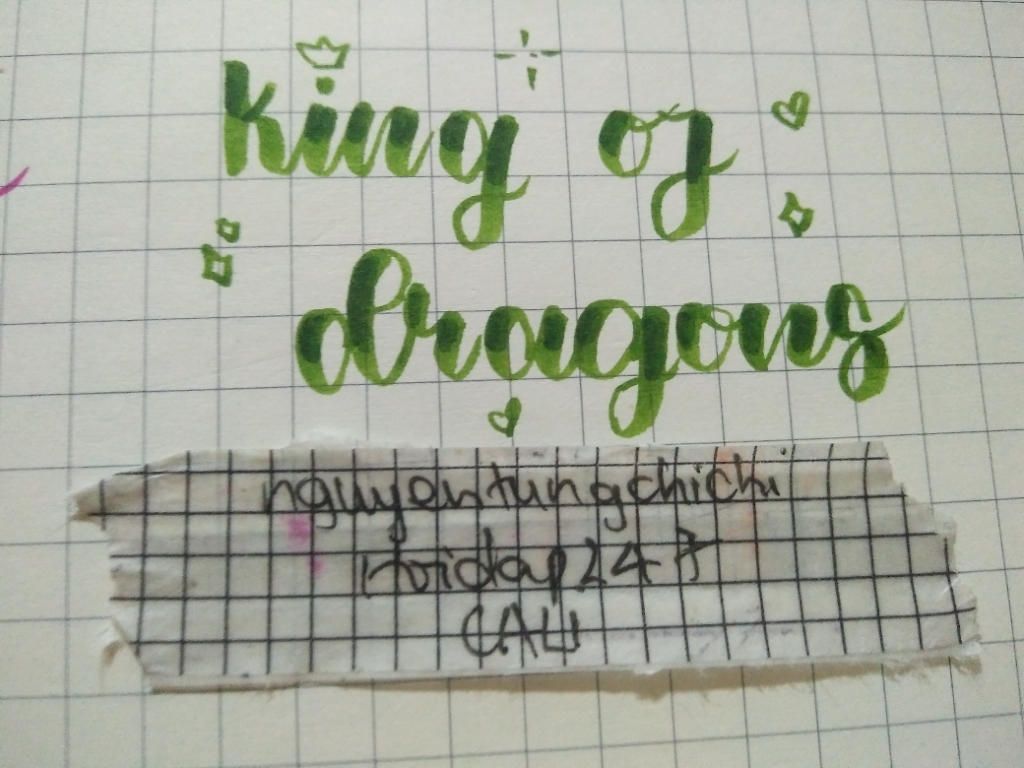 King of
dragons
nguyentungchichi
Hoidap247
CALI